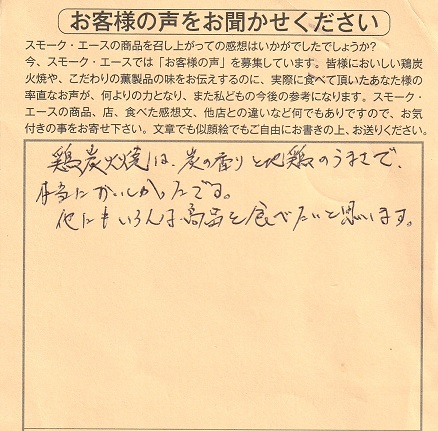 お客様の声をお聞かせください
スモーク・エースの商品を召し上がっての感想はいかがでしたでしょうか?
今、スモーク・エースでは「お客様の声」を募集しています。皆様においしい鶏炭
火焼や、こだわりの薫製品の味をお伝えするのに、実際に食べて頂いたあなた様の
率直なお声が、何よりの力となり、また私どもの今後の参考になります。スモーク・
エースの商品、店、食べた感想文、他店との違いなど何でもありですので、お気
付きの事をお寄せ下さい。文章でも似顔絵でもご自由にお書きの上、お送りください。
鶏炭火焼は、炭の香りと地鶏のうまさで、
本当においしかったです。
他にもいろんな商品を食べたいと思います。